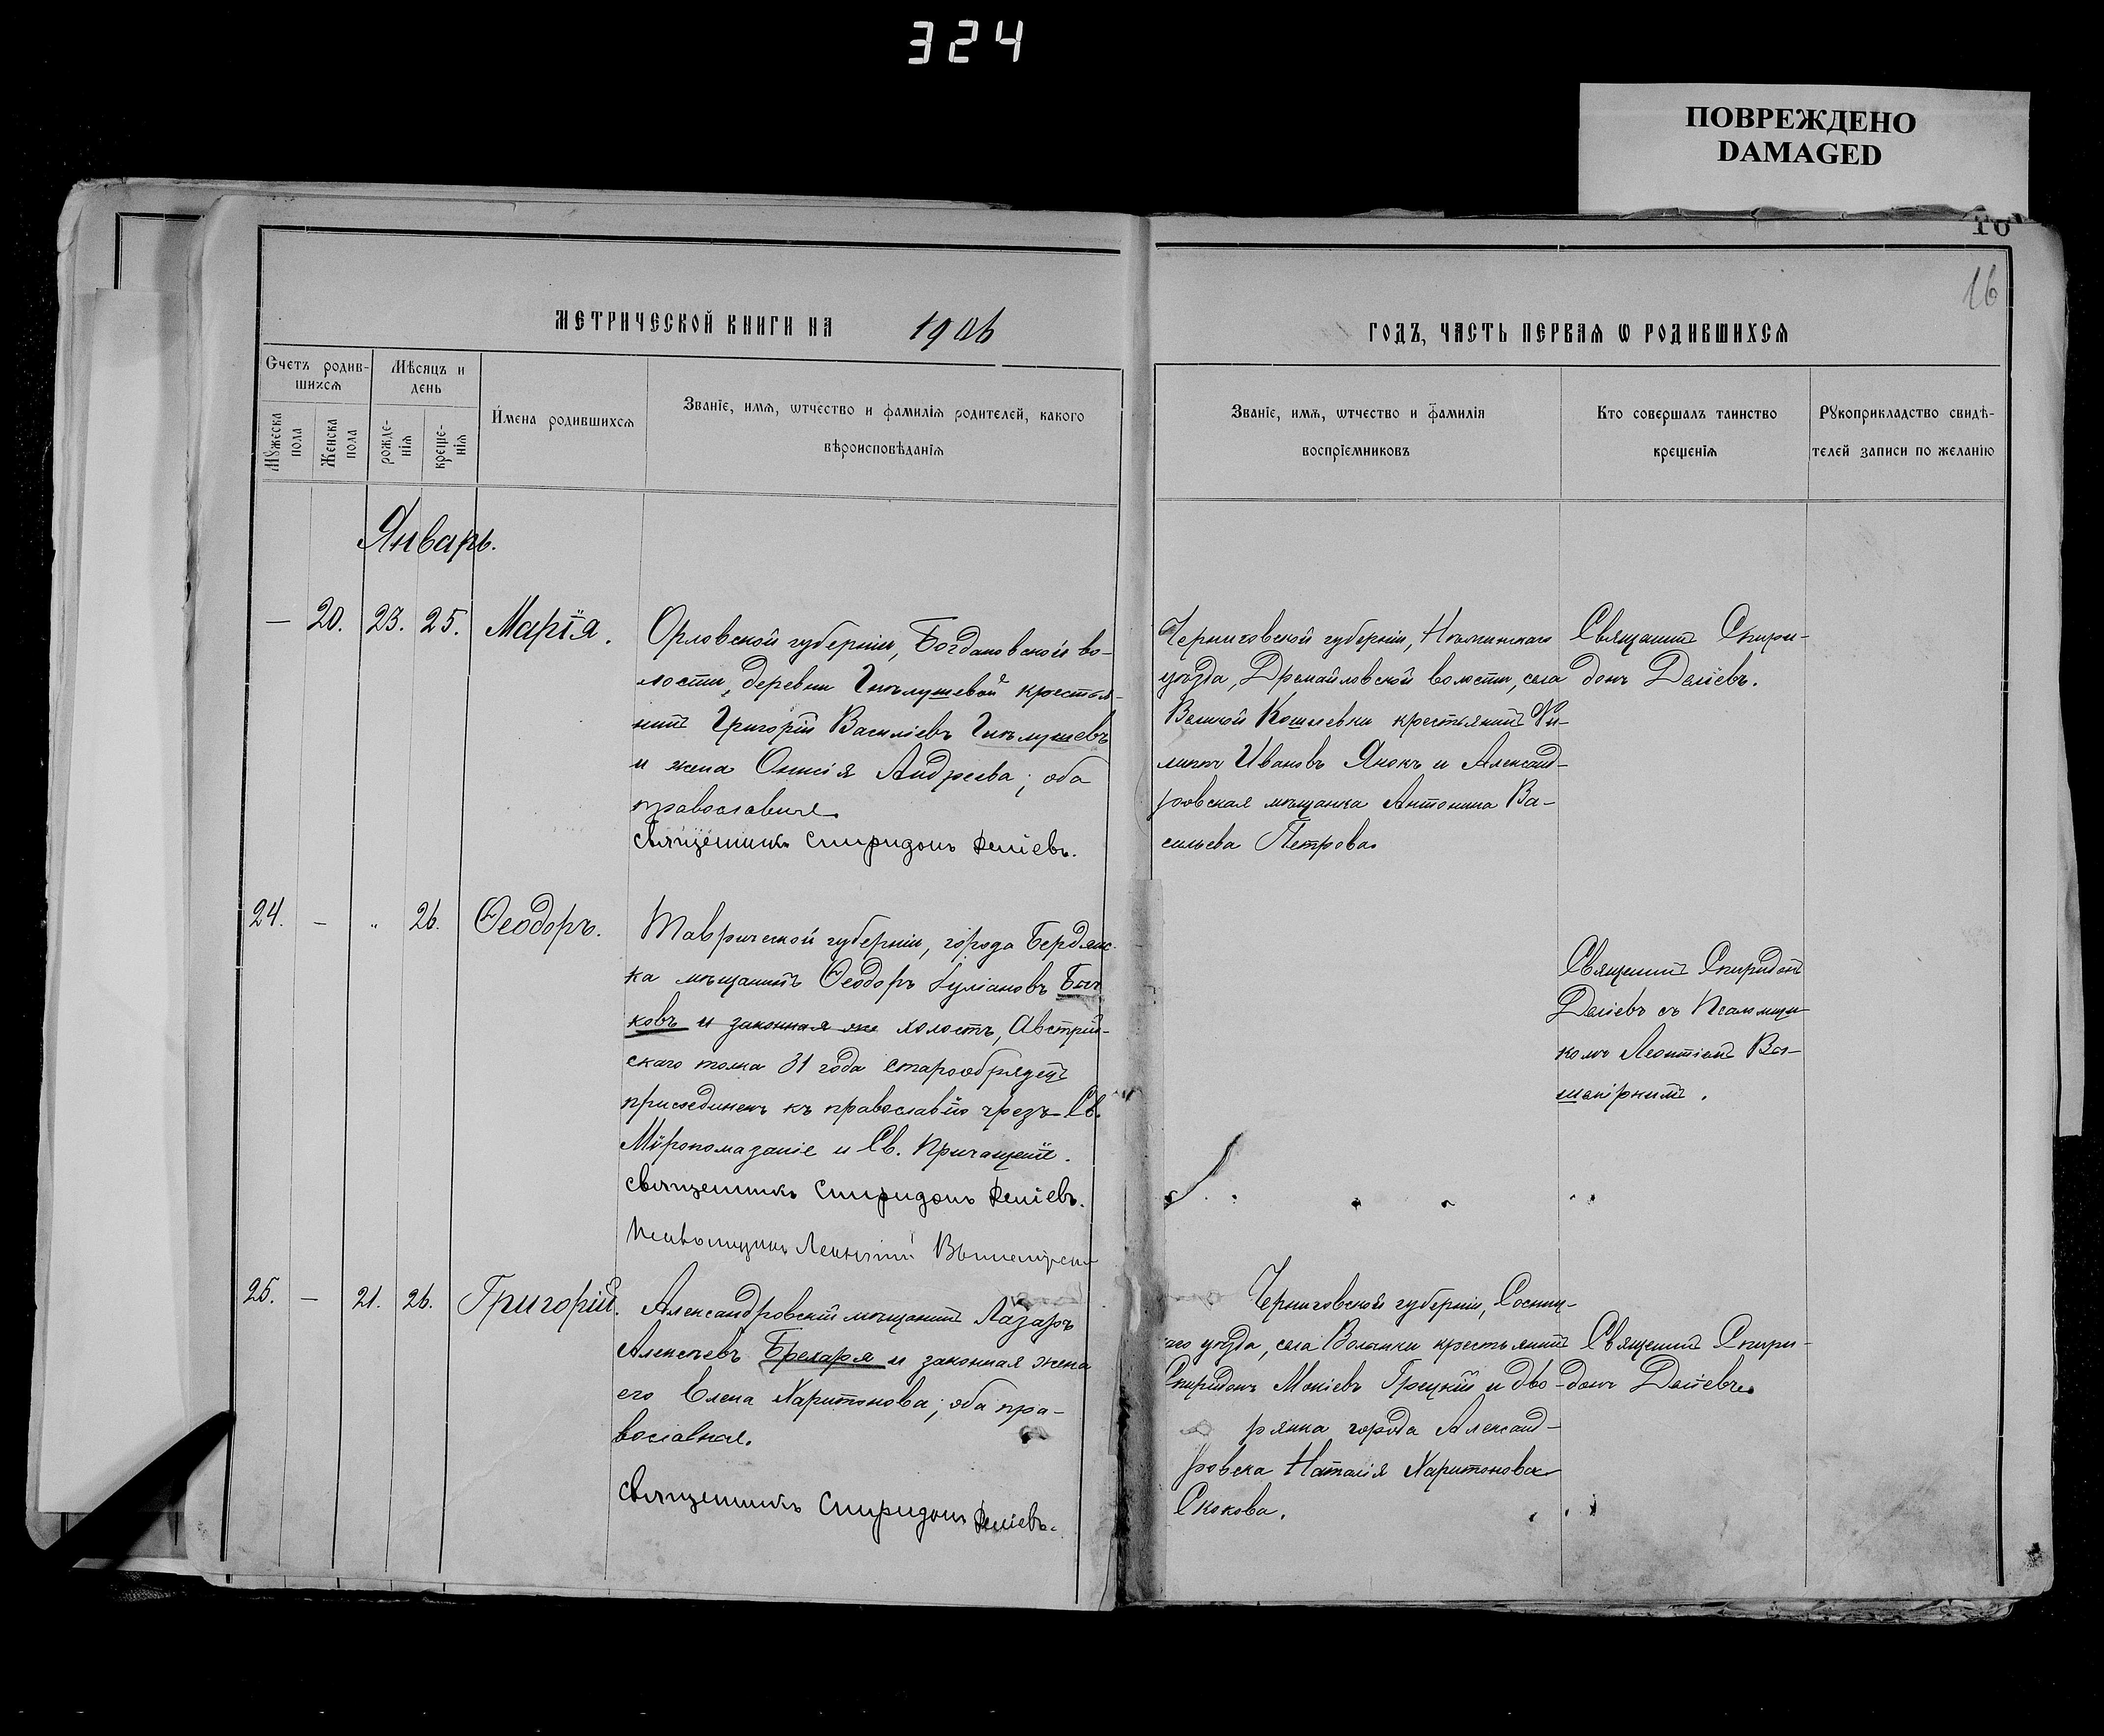 324
ПОВРЕЖДЕНО
DAMAGED
16
16
МЕТРИЧЕСКОЙ КНИГИ НА 1906
ГОДЪ, ЧАСТЬ ПЕРВАЯ Ѡ РОДИВШИХСѦ
Счетъ родив-
шихсѧ
Мѣсяцъ и
день
Мꙋжеска
пола
Женска
пола
рожде-
нїѧ
креще-
нїѧ
Имена родившихсѧ
Званїе, имѧ, ѿчество и фамилїѧ родителей, какого
вѣроисповѣданїѧ
Званїе, имѧ, ѿчество и фамилїѧ
воспрїемниковъ
Кто совершалъ таинство
крещенїѧ
Рꙋкоприкладство свидѣ-
телей записи по желанїю
Январь.
— 20. 23. 25. Марія.
Орловской губерніи, Богдановской во-
лости, деревни крестья-
нинъ Григорій Василіевъ
и жена Онисія Андреева; оба
православные
Священникъ Спиридонъ
Черниговской губерніи, Нѣжинскаго
уѣзда, Дремайловской волости, села
Великой Кошелевки крестьянинъ Фи-
липпъ Ивановъ Янокъ и Александ-
ровская мѣщанка Антонина Ва-
сильева Петрова.
Священникъ Спири-
донъ
24. — „ 26. Ѳеодоръ.
Таврической губерніи, города Бердянс-
ка мѣщанинъ Ѳеодоръ Іуліановъ Быч
ковъ и законная же холостъ, Австрій-
скаго толка 31 года старообрядецъ
присоединенъ къ православію чрезъ Св.
Мѵропомазаніе и Св. Причащеніе.
Священникъ Спиридонъ
Псаломщикъ Леонтій
Священникъ Спиридонъ
съ Псаломщи-
комъ Леонтіемъ
25. — 21. 26. Григорій.
Александровскій мѣщанинъ Лазарь
Алексѣевъ Брехаря и законная жена
его Елена Харитонова; оба пра-
вославные.
Священникъ Спиридонъ
Черниговской губерніи, Сосниц-
каго уѣзда, села Волынки крестьянинъ
Спиридонъ Мокіевъ Грецкій и дво-
рянка города Александ-
ровска Наталія Харитоновна
Скокова.
Священникъ Спири-
донъ